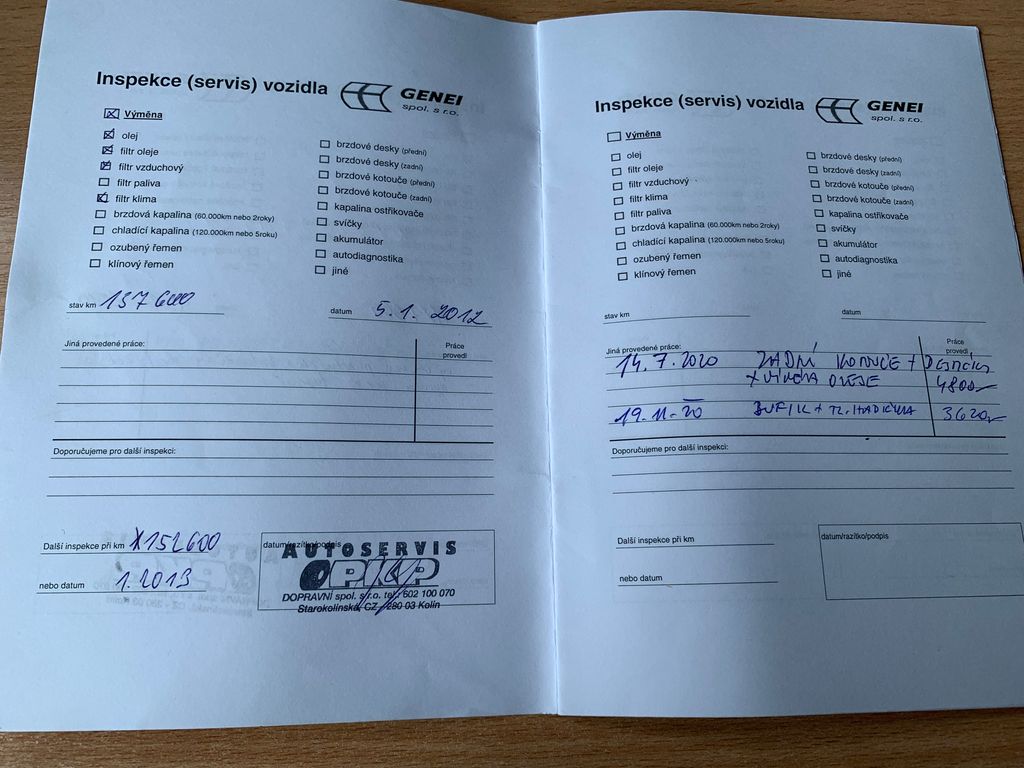 Inspekce (servis) vozidla GENEI
spol. s r.o.
Výměna
olej
filtr oleje
filtr vzduchový
filtr paliva
filtr klima
brzdová kapalina (60.000km nebo 2roky)
chladící kapalina (120.000km nebo 5roku)
ozubený řemen
klínový řemen
brzdové desky (přední)
brzdové desky (zadní)
brzdové kotouče (přední)
brzdové kotouče (zadní)
kapalina ostřikovače
svíčky
akumulátor
autodiagnostika
jiné
stav km 137600
datum 5.1. 2012
Jiná provedené práce: Práce
provedl
Doporučujeme pro další inspekci:
Další inspekce při km 152600
nebo datum 1.2013
datum/razítko/podpis
AUTOSERVIS
OPIKIP
DOPRAVNÍ spol. s r.o. tel.: 602 100 070
Starokolínská, CZ - 280 03 Kolín
Inspekce (servis) vozidla GENEI
spol. s r.o.
Výměna
olej
filtr oleje
filtr vzduchový
filtr klima
filtr paliva
brzdová kapalina (60.000km nebo 2roky)
chladící kapalina (120.000km nebo 5roku)
ozubený řemen
klínový řemen
brzdové desky (přední)
brzdové desky (zadní)
brzdové kotouče (přední)
brzdové kotouče (zadní)
kapalina ostřikovače
svíčky
akumulátor
autodiagnostika
jiné
stav km
datum
Jiná provedené práce: Práce
provedl
14.7.2020 ZADNÍ KOTOUČE +
+ VÝMĚNA OLEJE 4800
19.11.20 3620
Doporučujeme pro další inspekci:
Další inspekce při km
nebo datum
datum/razítko/podpis